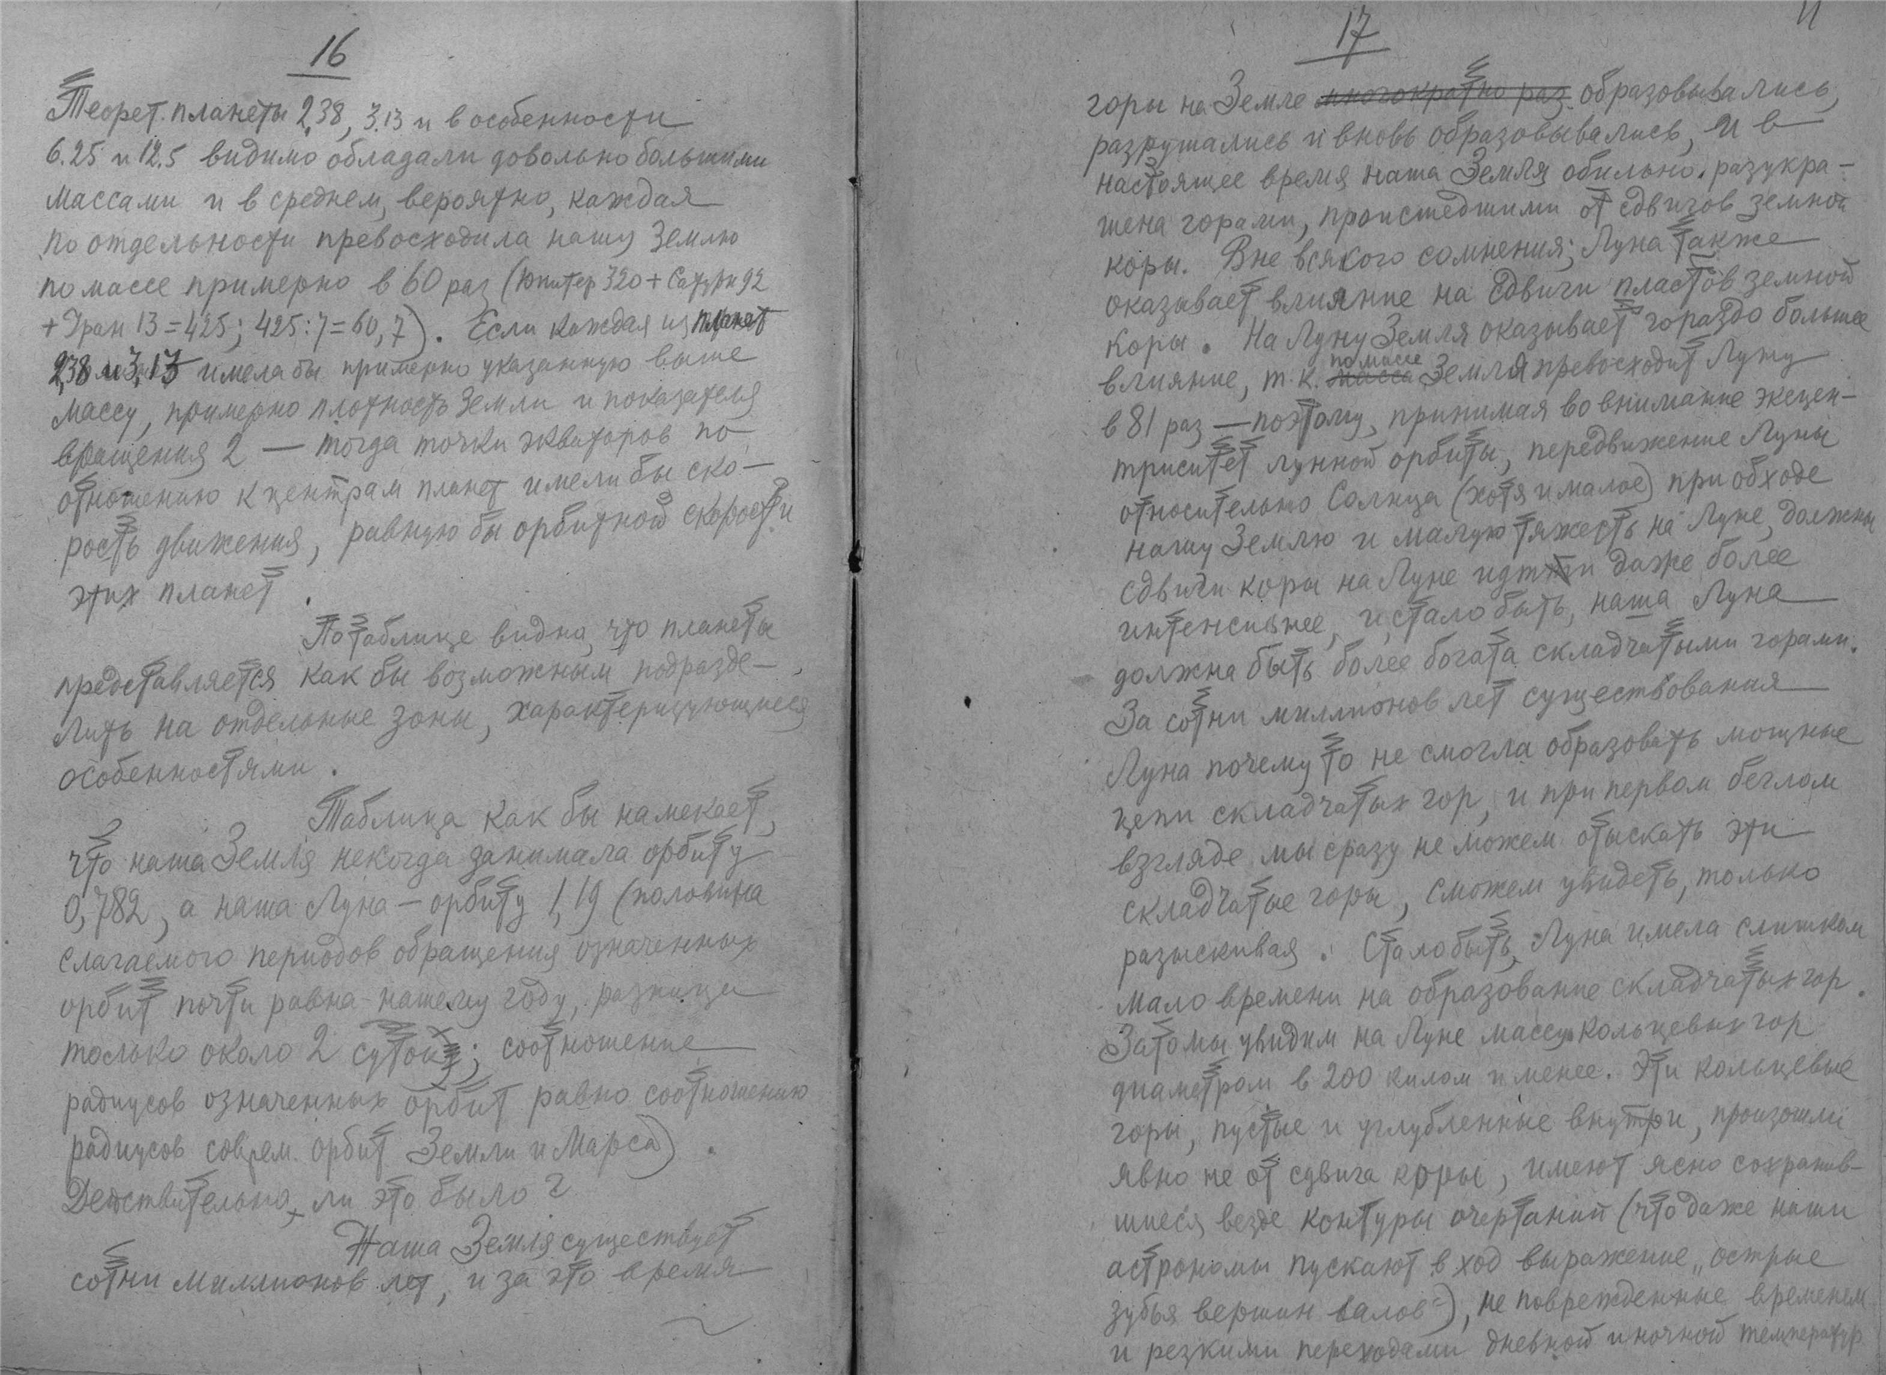 16
Теорет. планеты 2,38, 3.13 и в особенности
6.25 и 12.5 видимо обладали довольно большими
массами и в среднем, вероятно, каждая
по отдельности превосходила нашу Землю
по массе примерно в 60 раз (Юпитер 320 + Сатурн 92
+ Уран 13 = 425; 425 : 7 = 60,7). Если каждая из планет
2,38 и 3,13 имела бы примерно указанную выше
массу, примерно плотность Земли и показателя
вращения 2 — тогда точки экваторов по
отношению к центрам планет имели бы ско-
рость движения, равную бы орбитной скорости
этих планет.
По таблице видно, что планеты
представляется как бы возможным подразде-
лить на отдельные зоны, характеризующиеся
особенностями.
Таблица как бы намекает,
что наша Земля некогда занимала орбиту
0,782, а наша Луна — орбиту 1,19 (половина
слагаемого периодов обращения означенных
орбит почти равна нашему году, разница
только около 2 суток; соотношение
радиусов означенных орбит равно соотношению
радиусов соврем. орбит Земли и Марса).
Действительно, ли это было?
Наша Земля существует
сотни миллионов лет, и за это время
17
горы на Земле многократно раз образовывались,
разрушались и вновь образовывались, и в
настоящее время наша Земля обильно разукра-
шена горами, происшедшими от сдвигов земной
коры. Вне всякого сомнения; Луна также
оказывает влияние на сдвиги пластов земной
коры. На Луну Земля оказывает гораздо большее
влияние, т.к. масса по массе Земля превосходит Луну
в 81 раз — поэтому, принимая во внимание эксцен-
триситет лунной орбиты, передвижение Луны
относительно Солнца (хотя и малое) при обходе
нашу Землю и малую тяжесть на Луне, должны
сдвиги коры на Луне идти даже более
интенсивнее, и, стало быть, наша Луна
должна быть более богата складчатыми горами.
За сотни миллионов лет существования
Луна почему то не смогла образовать мощные
цепи складчатых гор, и при первом беглом
взгляде мы сразу не можем отыскать эти
складчатые горы, сможем увидеть, только
разыскивая. Стало быть, Луна имела слишком
мало времени на образование складчатых гор.
Зато мы увидим на Луне массу кольцевых гор
диаметром в 200 килом и менее. Эти кольцевые
горы, пустые и углубленные внутри, произошли
явно не от сдвига коры, имеют ясно сохранив-
шиеся везде контуры очертаний (что даже наши
астрономы пускают в ход выражение „острые
зубья вершин валов"), не поврежденные временем
и резкими переходами дневной и ночной температур